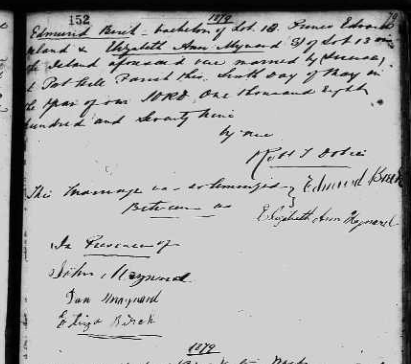 152
1879
Edmund Birch bachelor of Lot 10. Prince Edward
Island & Elizabeth Ann Maynard of Lot 13 on
the Island aforesaid were married by License,
at Port Hill Parish this Day of May in
the year of our LORD One thousand Eight
hundred and Seventy Nine
by me
Robt T
This Marriage was solemnized } Edmund Birch
Between us
Elizabeth Ann Maynard
In Presence of
John Maynard
Maynard
Eliza Birch
1879